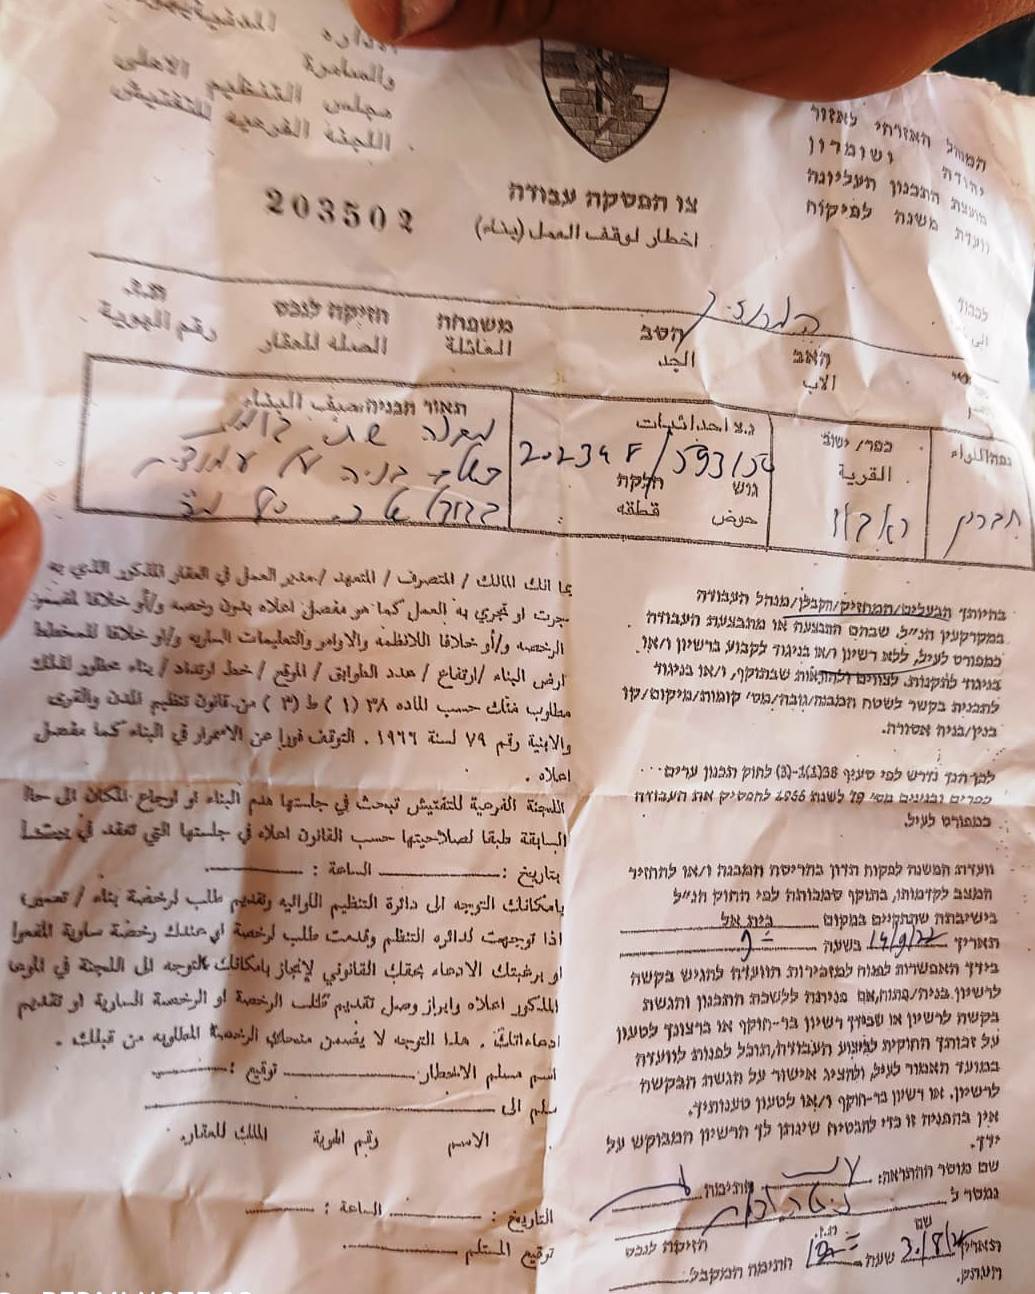 الادارة المدنية
والسامرة
مجلس التنظيم الاعلى
اللجنة الفرعية للتفتيش
המנהל האזרחי לאזור
יהודה ושומרון
מועצת התכנון העליונה
וועדת משנה לפיקוח
203502
צו הפסקת עבודה
اخطار لوقف العمل (بناء)
לכבוד
האב
الاب
הסב
الجد
משפחה
العائلة
חזיקה לנכס
الصلة للعقار
ת.ז.
رقم الهوية
כפר/ ישוב
القرية
נ.צ احداثيات
593150
גוש חלקה
حوض قطعه
תאור הבניה وصف البناء
חברון
בהיותך הבעלים/המחזיק/הקבלן/מנהל העבודה
במקרקעין הנ"ל, שבהם התבצעה או מתבצעת העבודה
כמפורט לעיל, ללא רשיון ו/או בניגוד לקבוע ברשיון ו/או
בניגוד לתקנות, לצווים ולהוראות שבתוקף, ו/או בניגוד
לתכנית בקשר לשטח המבנה/גובה/מס' קומות/מיקום/קו
בנין/בניה אסורה.
לכן הנך נדרש לפי סעיף 38(1)-(3) לחוק תכנון ערים
כפרים ובנינים מס' 79 לשנת 1966 להפסיק את העבודה
כמפורט לעיל.
וועדת המשנה לפקוח תדון בהריסת המבנה ו/או להחזיר
המצב לקדמותו, בתוקף סמכותה לפי החוק הנ"ל
בישיבתה שתתקיים במקום בית אל
תאריך 14/9/22 בשעה 9
בידך האפשרות לפנות למזכירות הוועדה להגיש בקשה
לרשיון בניה/פתוח, אם פניתה ללשכת התכנון והגשת
בקשה לרשיון או שבידך רשיון בר-תוקף או ברצונך לטעון
על זכותך החוקית לביצוע העבודה, תוכל לפנות לוועדה
במועד האמור לעיל, ולהציג אישור על הגשת הבקשה
לרשיון. או רשיון בר-תוקף ו/או לטעון טענותיך.
אין בהפניה זו כדי להבטיח שינתן לך הרשיון המבוקש על
ידך.
שם מוסר ההתראה: חתימה
נמסר ל
שם ת.ז. חזיקה לנכס
תאריך שעה חתימה המקבל
העתק.
بما انك المالك / المتصرف / المتعهد /مدير العمل في العقار المذكور الذي به
جرت او تجري به العمل كما هو مفصل اعلاه بدون رخصه و/أو خلافا لمضمون
الرخصه و/أو خلافا للانظمه والاوامر والتعليمات الساريه و/او خلافا للمخطط
ارض البناء /ارتفاع / عدد الطوابق / الموقع / خط ارتداد / بناء محظور لذلك
مطلوب منك حسب الماده ٣٨ (١) ط (٣) من قانون تنظيم المدن والقرى
والابنية رقم ٧٩ لسنة ١٩٦٦ . التوقف فورا عن الاستمرار في البناء كما مفصل
اعلاه .
اللجنة الفرعية للتفتيش تبحث في جلستها هدم البناء او ارجاع المكان الى حاله
السابقة طبقا لصلاحيتها حسب القانون اعلاه في جلستها التي تعقد في
بتاريخ : الساعة :
بامكانك التوجه الى دائرة التنظيم اللوائيه وتقديم طلب لرخصة بناء / تعمير،
اذا توجهت لدائره التنظيم وقدمت طلب لرخصة اي عندك رخصة سارية المفعول
او برغبتك الادعاء بحقك القانوني لإنجاز بامكانك التوجه الى اللجنة في الموعد
المذكور اعلاه وابراز وصل تقديم طلب الرخصة او الرخصة السارية او تقديم
ادعاءاتك . هذا التوجه لا يضمن منحك الرخصة المطلوبه من قبلك .
اسم مسلم الاخطار توقيع :
سلم الى
الاسم رقم الهوية المالك للعقار.
التاريخ : الساعة :
توقيع المستلم